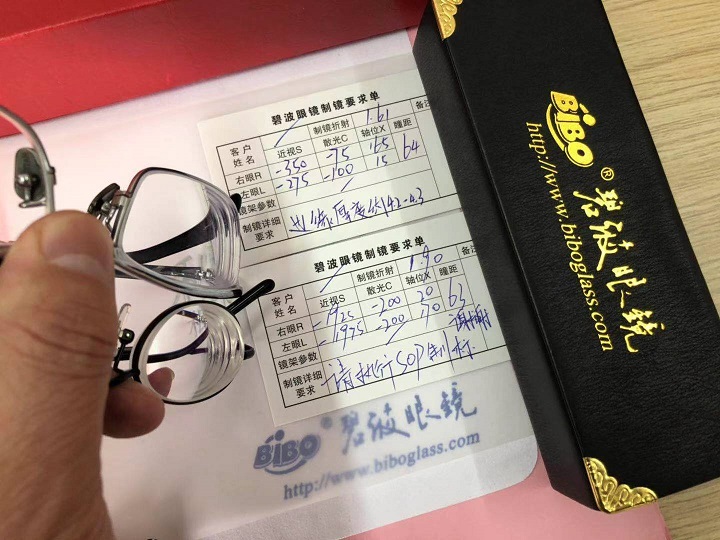 碧波眼镜制镜要求单
制镜折射 1.61 备注
客户姓名 近视S 散光C 轴位X 瞳距
右眼R -350 -75 165 64
左眼L -275 -100 15
镜架参数
制镜详细要求 边缘厚度约4.2-4.3
碧波眼镜制镜要求单
制镜折射 1.90 备注
客户姓名 近视S 散光C 轴位X 瞳距
右眼R -1925 -200 20 63
左眼L -1975 -200
镜架参数 谢谢
制镜详细要求 请执行SOP制标
BiBO 碧波眼镜
http://www.biboglass.com
BiBO® 碧波眼镜
http://www.biboglass.com